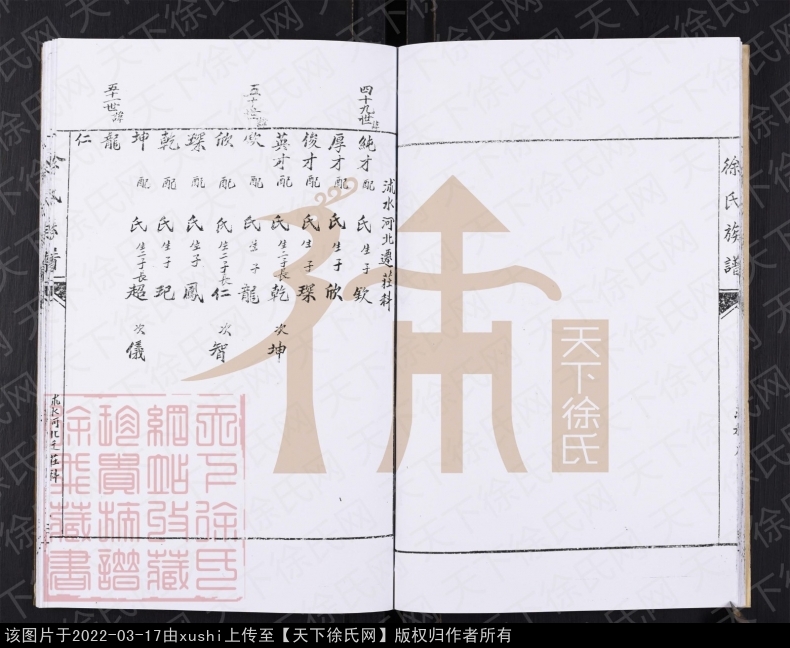 徐氏族譜
流水河北遷莊科
四十九世諱
純才 配 氏 生子 欽
厚才 配 氏 生子 欣
俊才 配 氏 生子 琛
英才 配 氏 生二子長 乾 次 坤
五十世諱
欽 配 氏 生子 龍
欣 配 氏 生二子長 仁 次 智
琛 配 氏 生子 鳳
乾 配 氏 生子 玘
坤 配 氏 生二子長 超 次 儀
五十一世諱
龍
仁
徐氏族譜
流水河北遷莊科
天下徐氏
天下徐氏
網站收藏
珍貴孤譜
徐飛藏書
天下徐氏网
该图片于2022-03-17由xushi上传至【天下徐氏网】版权归作者所有